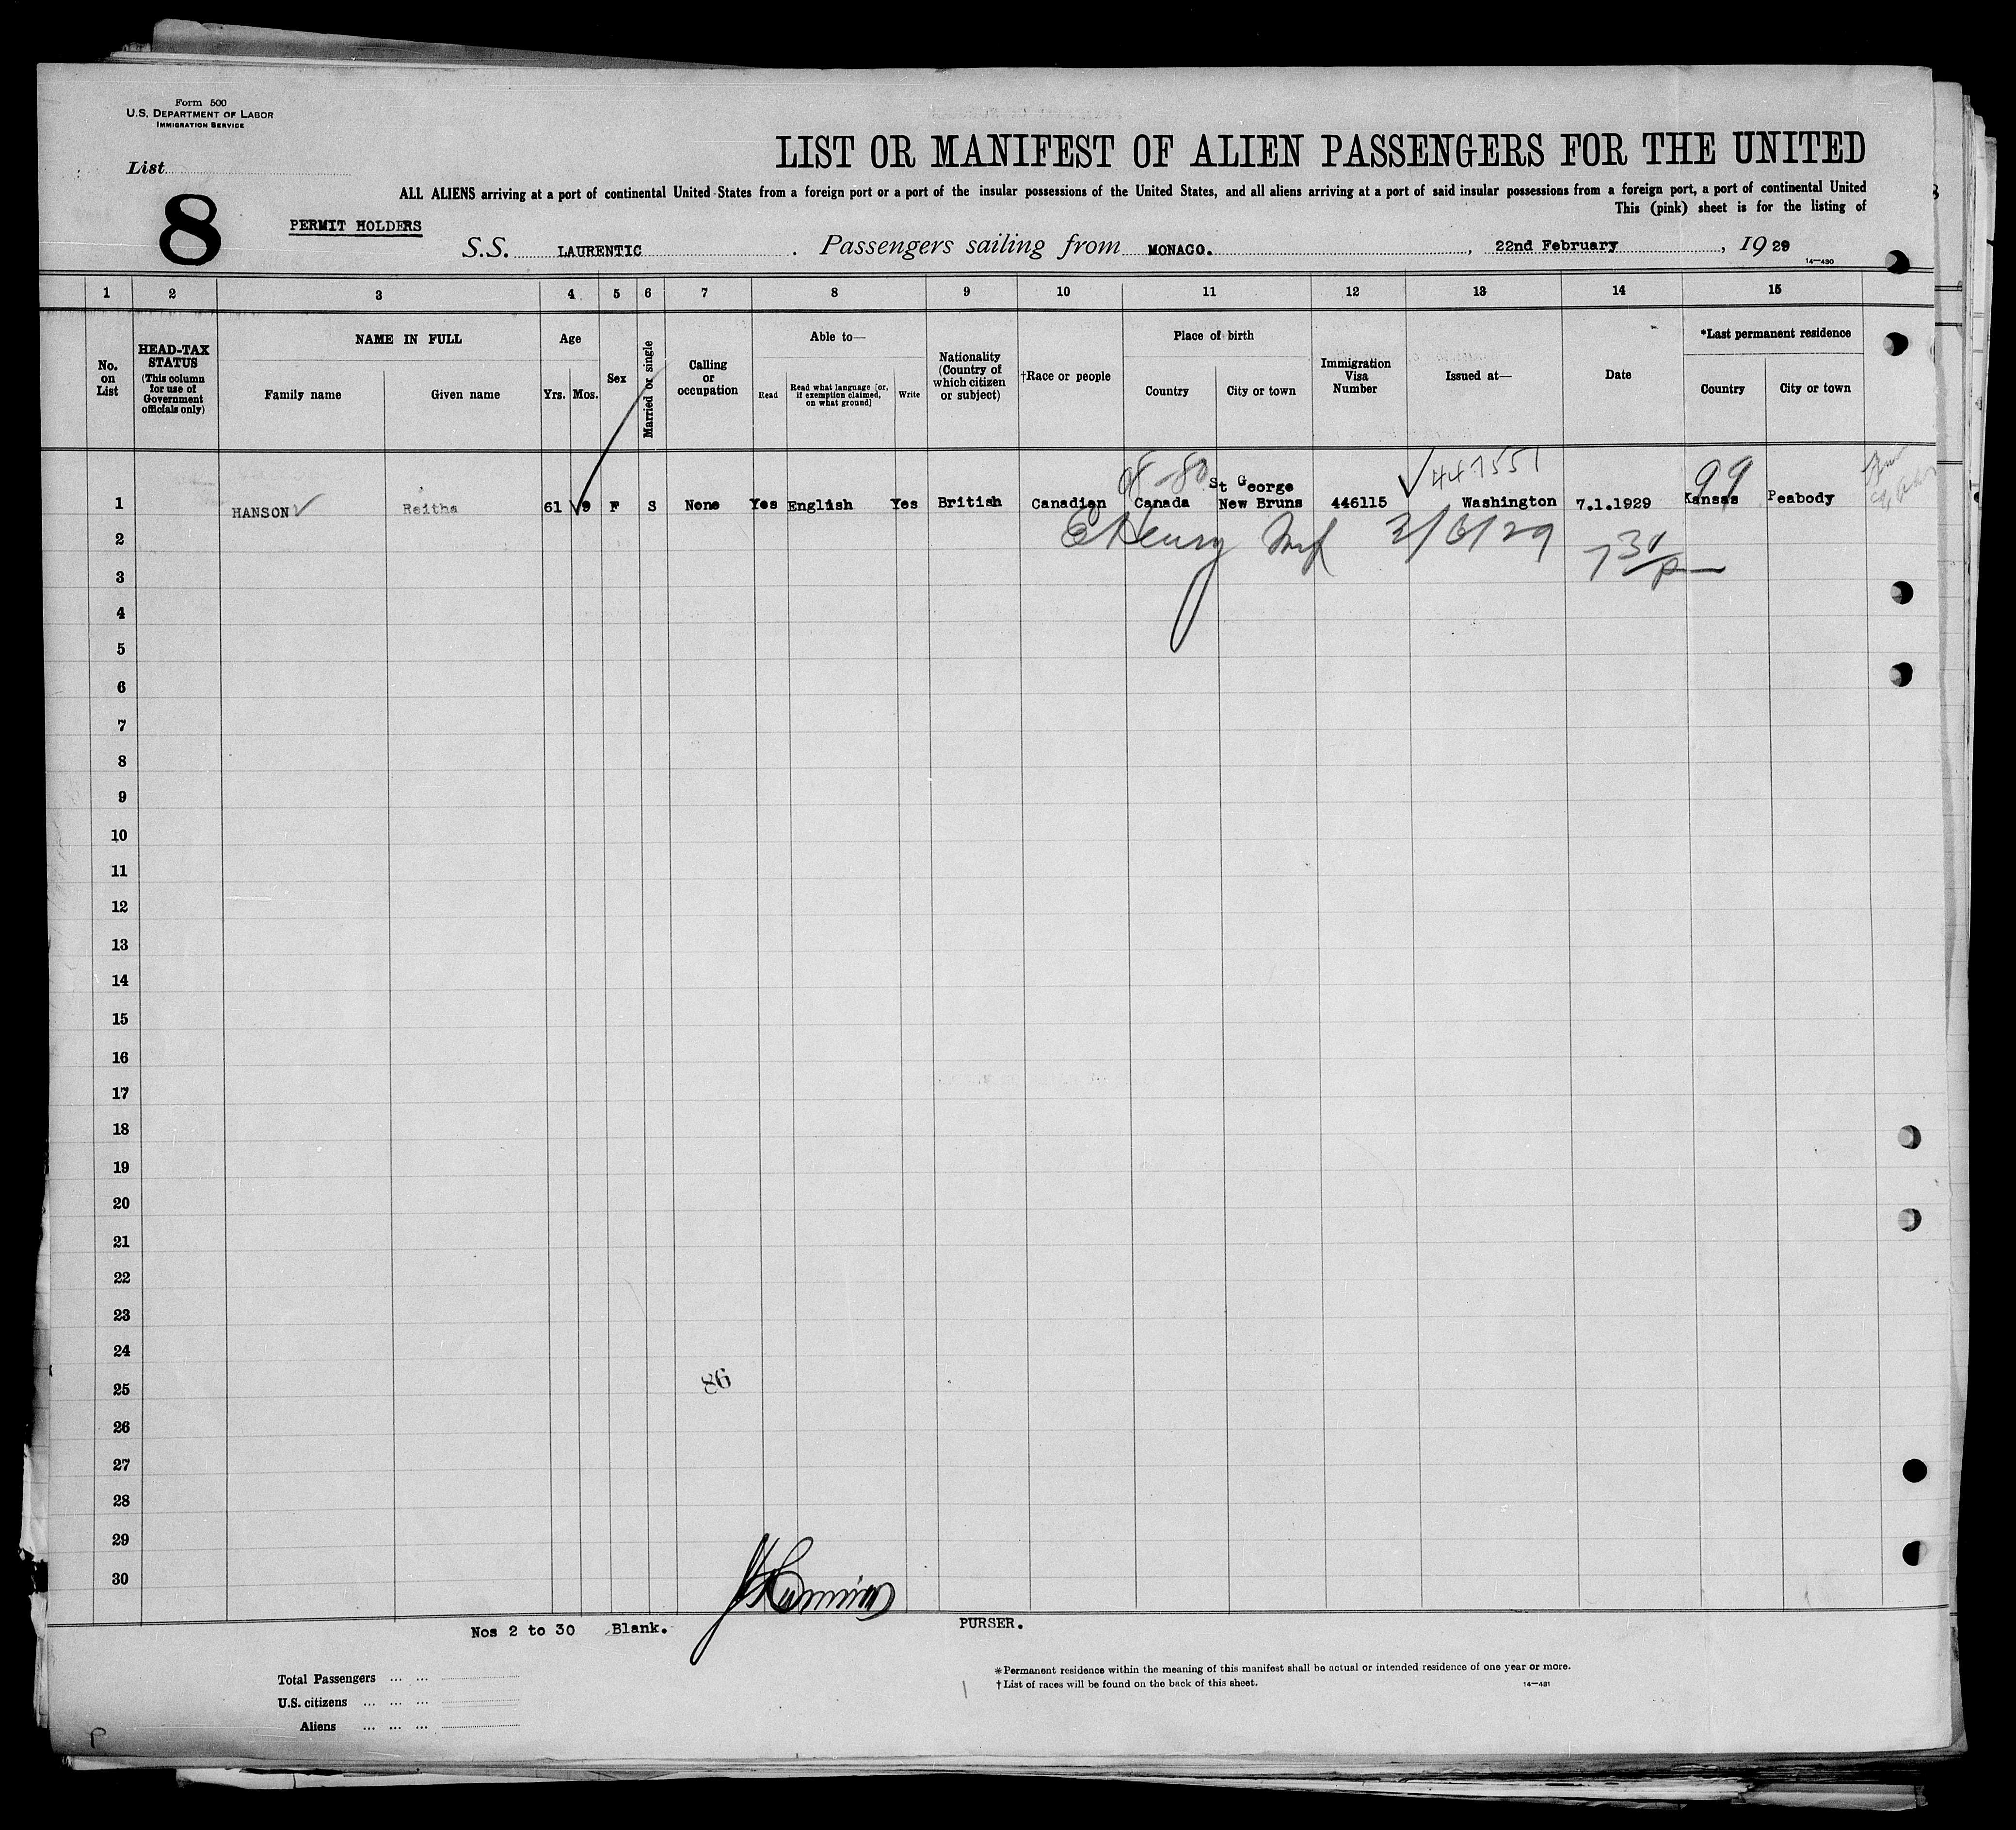 Form 500
U.S. DEPARTMENT OF LABOR
IMMIGRATION SERVICE
List
8
LIST OR MANIFEST OF ALIEN PASSENGERS FOR THE UNITED
ALL ALIENS arriving at a port of continental United States from a foreign port or a port of the insular possessions of the United States, and all aliens arriving at a port of said insular possessions from a foreign port, a port of continental United
This (pink) sheet is for the listing of
PERMIT HOLDERS
S.S. LAURENTIC . Passengers sailing from MONACO. , 22nd February , 19 29
14-430
1 2 3 4 5 6 7 8 9 10 11 12 13 14 15
No. on List
HEAD-TAX STATUS (This column for use of Government officials only)
NAME IN FULL
Family name Given name
Age
Yrs. Mos.
Sex
Married or single
Calling or occupation
Able to—
Read
Read what language [or, if exemption claimed, on what ground]
Write
Nationality (Country of which citizen or subject)
†Race or people
Place of birth
Country City or town
Immigration Visa Number
Issued at—
Date
*Last permanent residence
Country City or town
447551
99
1 HANSON Reitha 61 9 F S None Yes English Yes British Canadian Canada St George New Bruns 446115 Washington 7.1.1929 Kansas Peabody
2
3/6/29
7 30/p
3
4
5
6
7
8
9
10
11
12
13
14
15
16
17
18
19
20
21
22
23
24
25
86
26
27
28
29
30
Nos 2 to 30 Blank.
PURSER.
Total Passengers ... ...
U.S. citizens ... ... ...
Aliens ... ... ...
*Permanent residence within the meaning of this manifest shall be actual or intended residence of one year or more.
†List of races will be found on the back of this sheet.
14-431
P